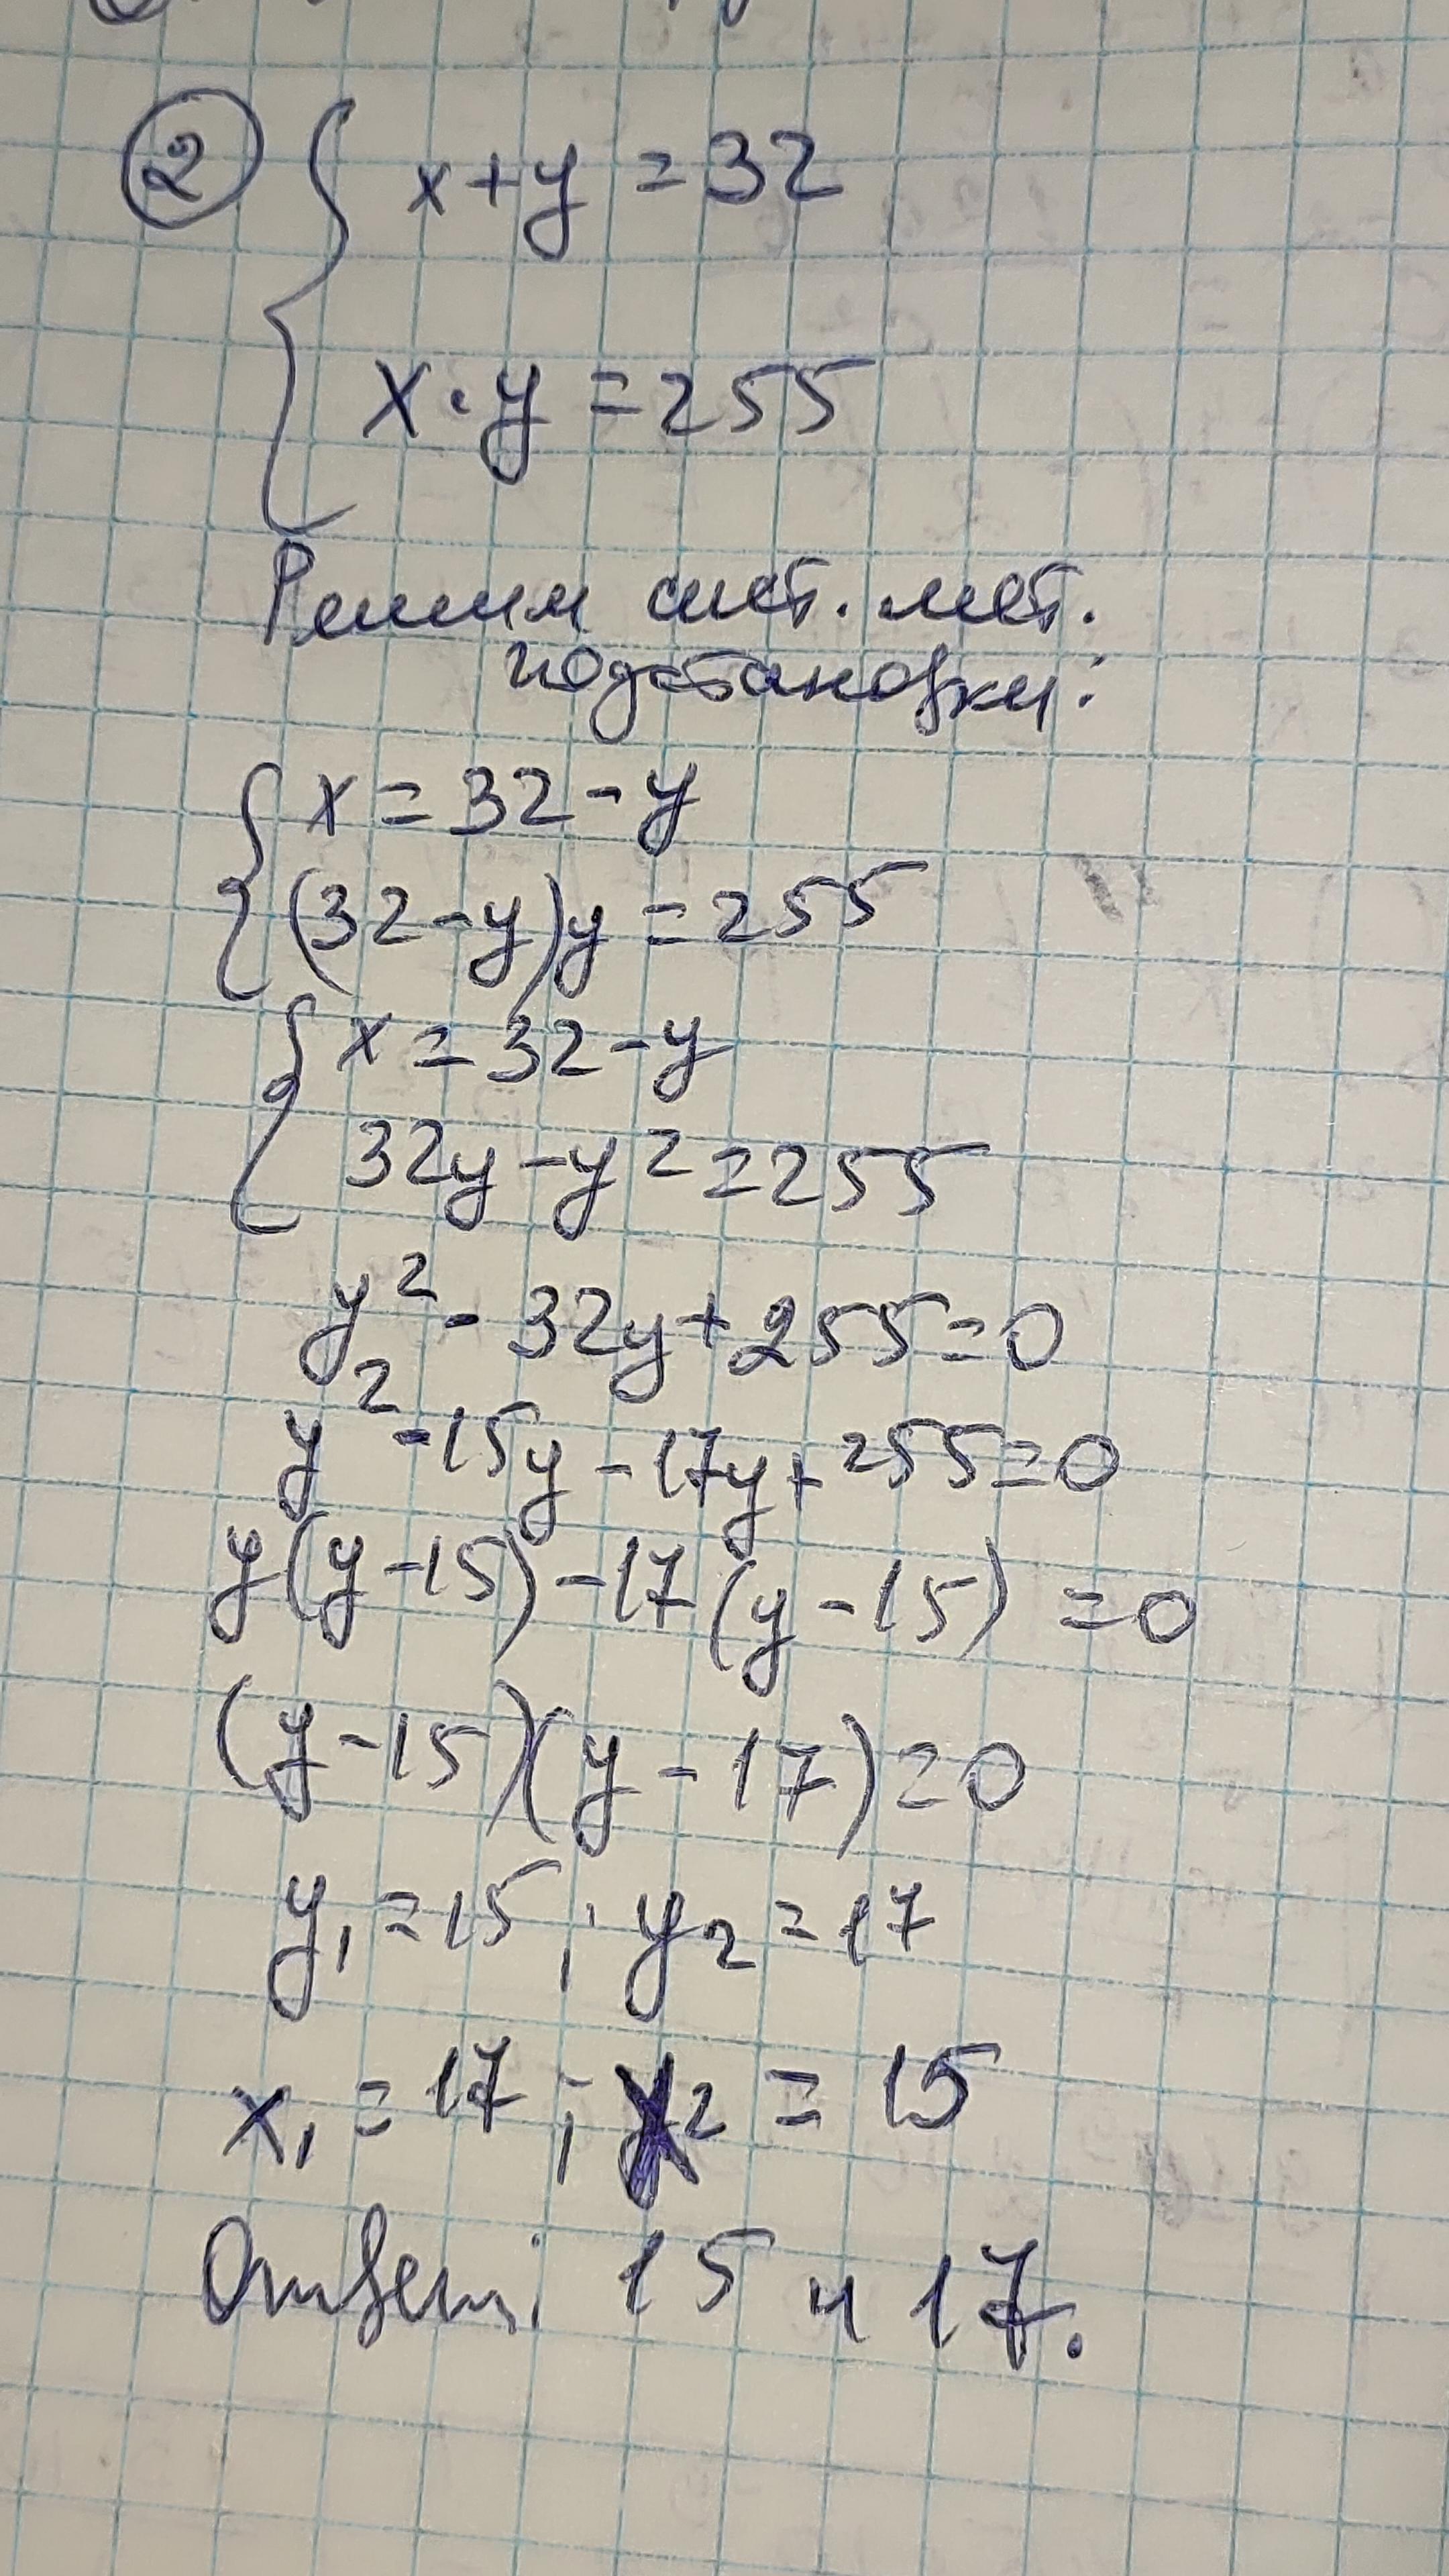 ② { x+y = 32
x·y = 255
Решим сист. мет.
подстановки:
{ x = 32 - y
(32-y)y = 255
{ x = 32 - y
32y - y² = 255
y² - 32y + 255 = 0
y² - 15y - 17y + 255 = 0
y(y-15) - 17(y-15) = 0
(y-15)(y-17) = 0
y₁ = 15 ; y₂ = 17
x₁ = 17 ; x₂ = 15
Ответ: 15 и 17.